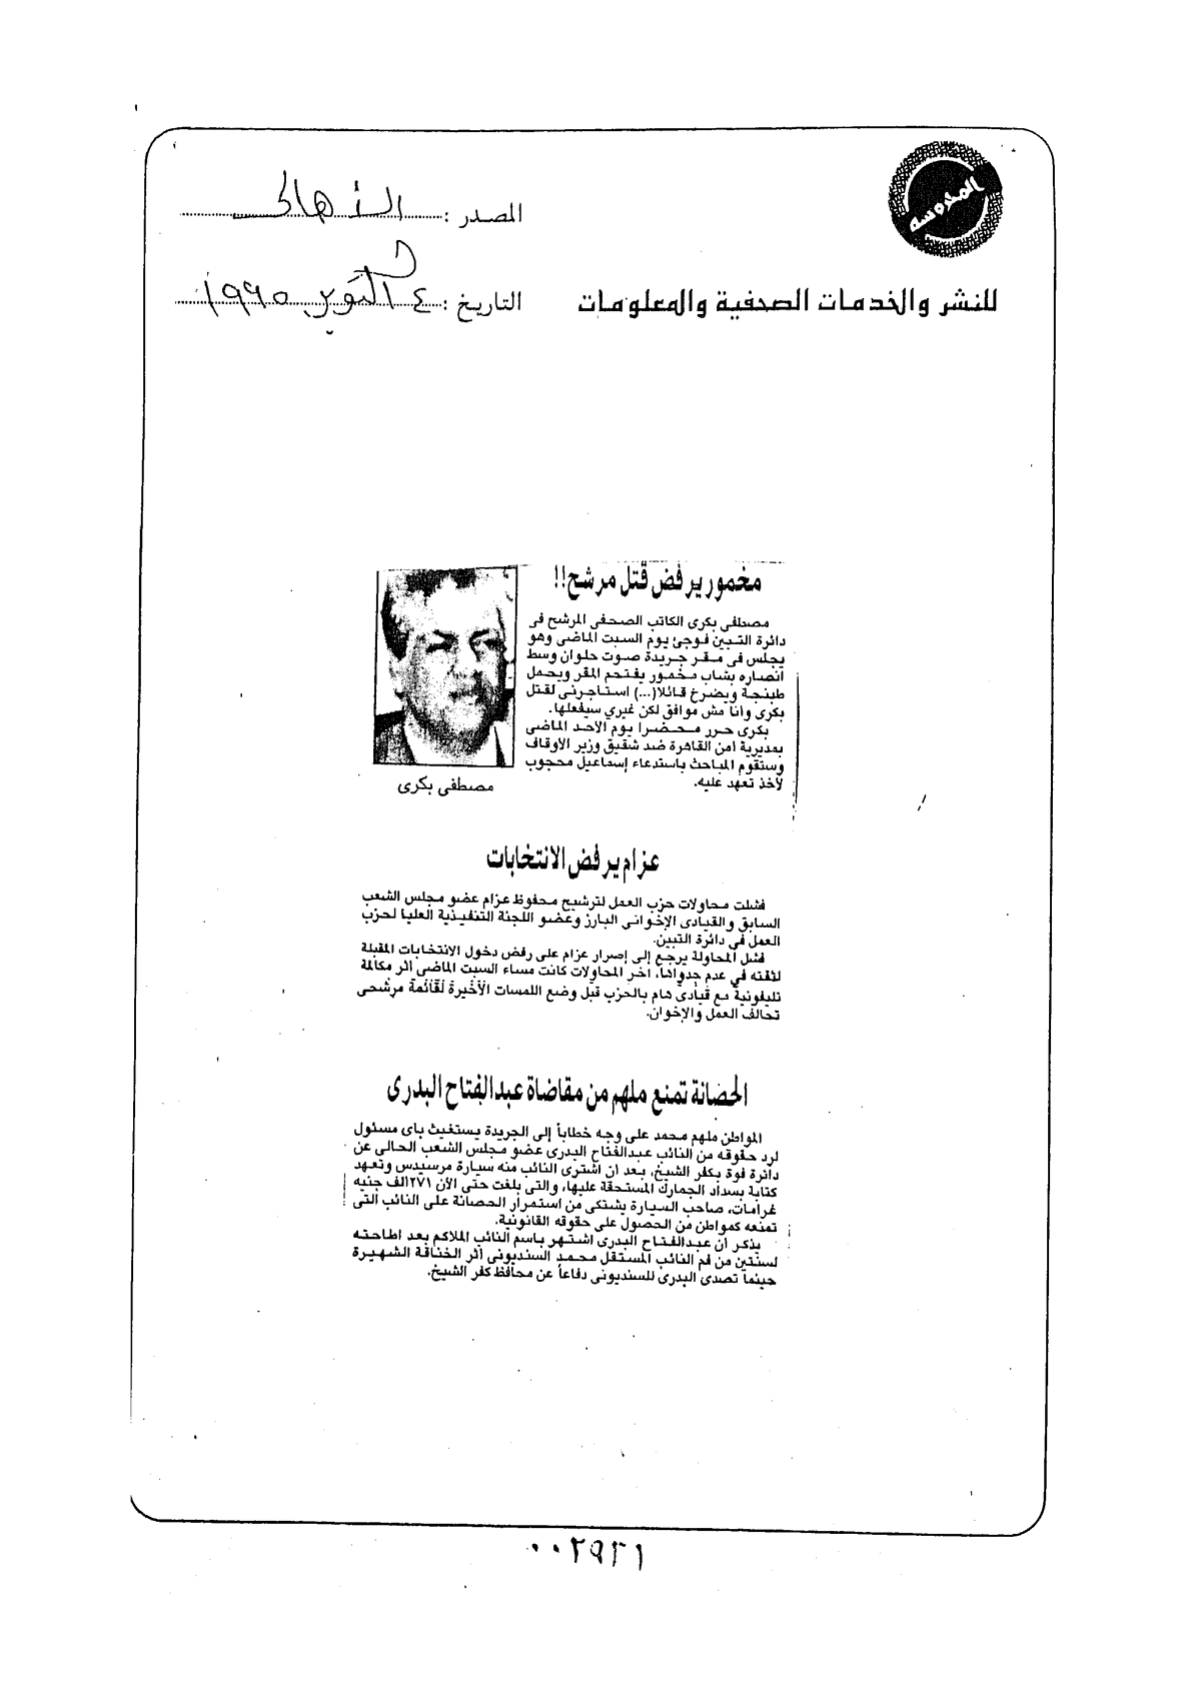 المحروسة
للنشر والخدمات الصحفية والمعلومات
المصدر : الأهالى
التاريخ : ٤ أكتوبر ١٩٩٥
مخمور يرفض قتل مرشح!!
مصطفى بكرى الكاتب الصحفى المرشح فى
دائرة التبين فوجئ يوم السبت الماضى وهو
يجلس فى مقر جريدة صوت حلوان وسط
أنصاره بشاب مخمور يقتحم المقر ويحمل
طبنجة ويصرخ قائلا (...) استأجرنى لقتل
بكرى وأنا مش موافق لكن غيري سيفعلها.
بكرى حرر محضرا يوم الأحد الماضى
بمديرية أمن القاهرة ضد شقيق وزير الأوقاف
وستقوم المباحث باستدعاء إسماعيل محجوب
لأخذ تعهد عليه.
مصطفى بكرى
عزام يرفض الانتخابات
فشلت محاولات حزب العمل لترشيح محفوظ عزام عضو مجلس الشعب
السابق والقيادى الإخوانى البارز وعضو اللجنة التنفيذية العليا لحزب
العمل فى دائرة التبين.
فشل المحاولة يرجع إلى إصرار عزام على رفض دخول الانتخابات المقبلة
لثقته في عدم جدواها، آخر المحاولات كانت مساء السبت الماضى أثر مكالمة
تليفونية مع قيادى هام بالحزب قبل وضع اللمسات الأخيرة لقائمة مرشحى
تحالف العمل والإخوان.
الحصانة تمنع ملهم من مقاضاة عبدالفتاح البدرى
المواطن ملهم محمد على وجه خطاباً إلى الجريدة يستغيث بأى مسئول
لرد حقوقه من النائب عبدالفتاح البدرى عضو مجلس الشعب الحالى عن
دائرة فوة بكفر الشيخ، بعد أن اشترى النائب منه سيارة مرسيدس وتعهد
كتابة بسداد الجمارك المستحقة عليها، والتى بلغت حتى الآن ٢٧١ ألف جنيه
غرامات، صاحب السيارة يشتكى من استمرار الحصانة على النائب التى
تمنعه كمواطن من الحصول على حقوقه القانونية.
يذكر أن عبدالفتاح البدرى اشتهر باسم النائب الملاكم بعد اطاحته
لسنتين من فم النائب المستقل محمد السنديونى أثر الخناقة الشهيرة
حينما تصدى البدرى للسنديونى دفاعاً عن محافظ كفر الشيخ.
٠٠٢٩٢١